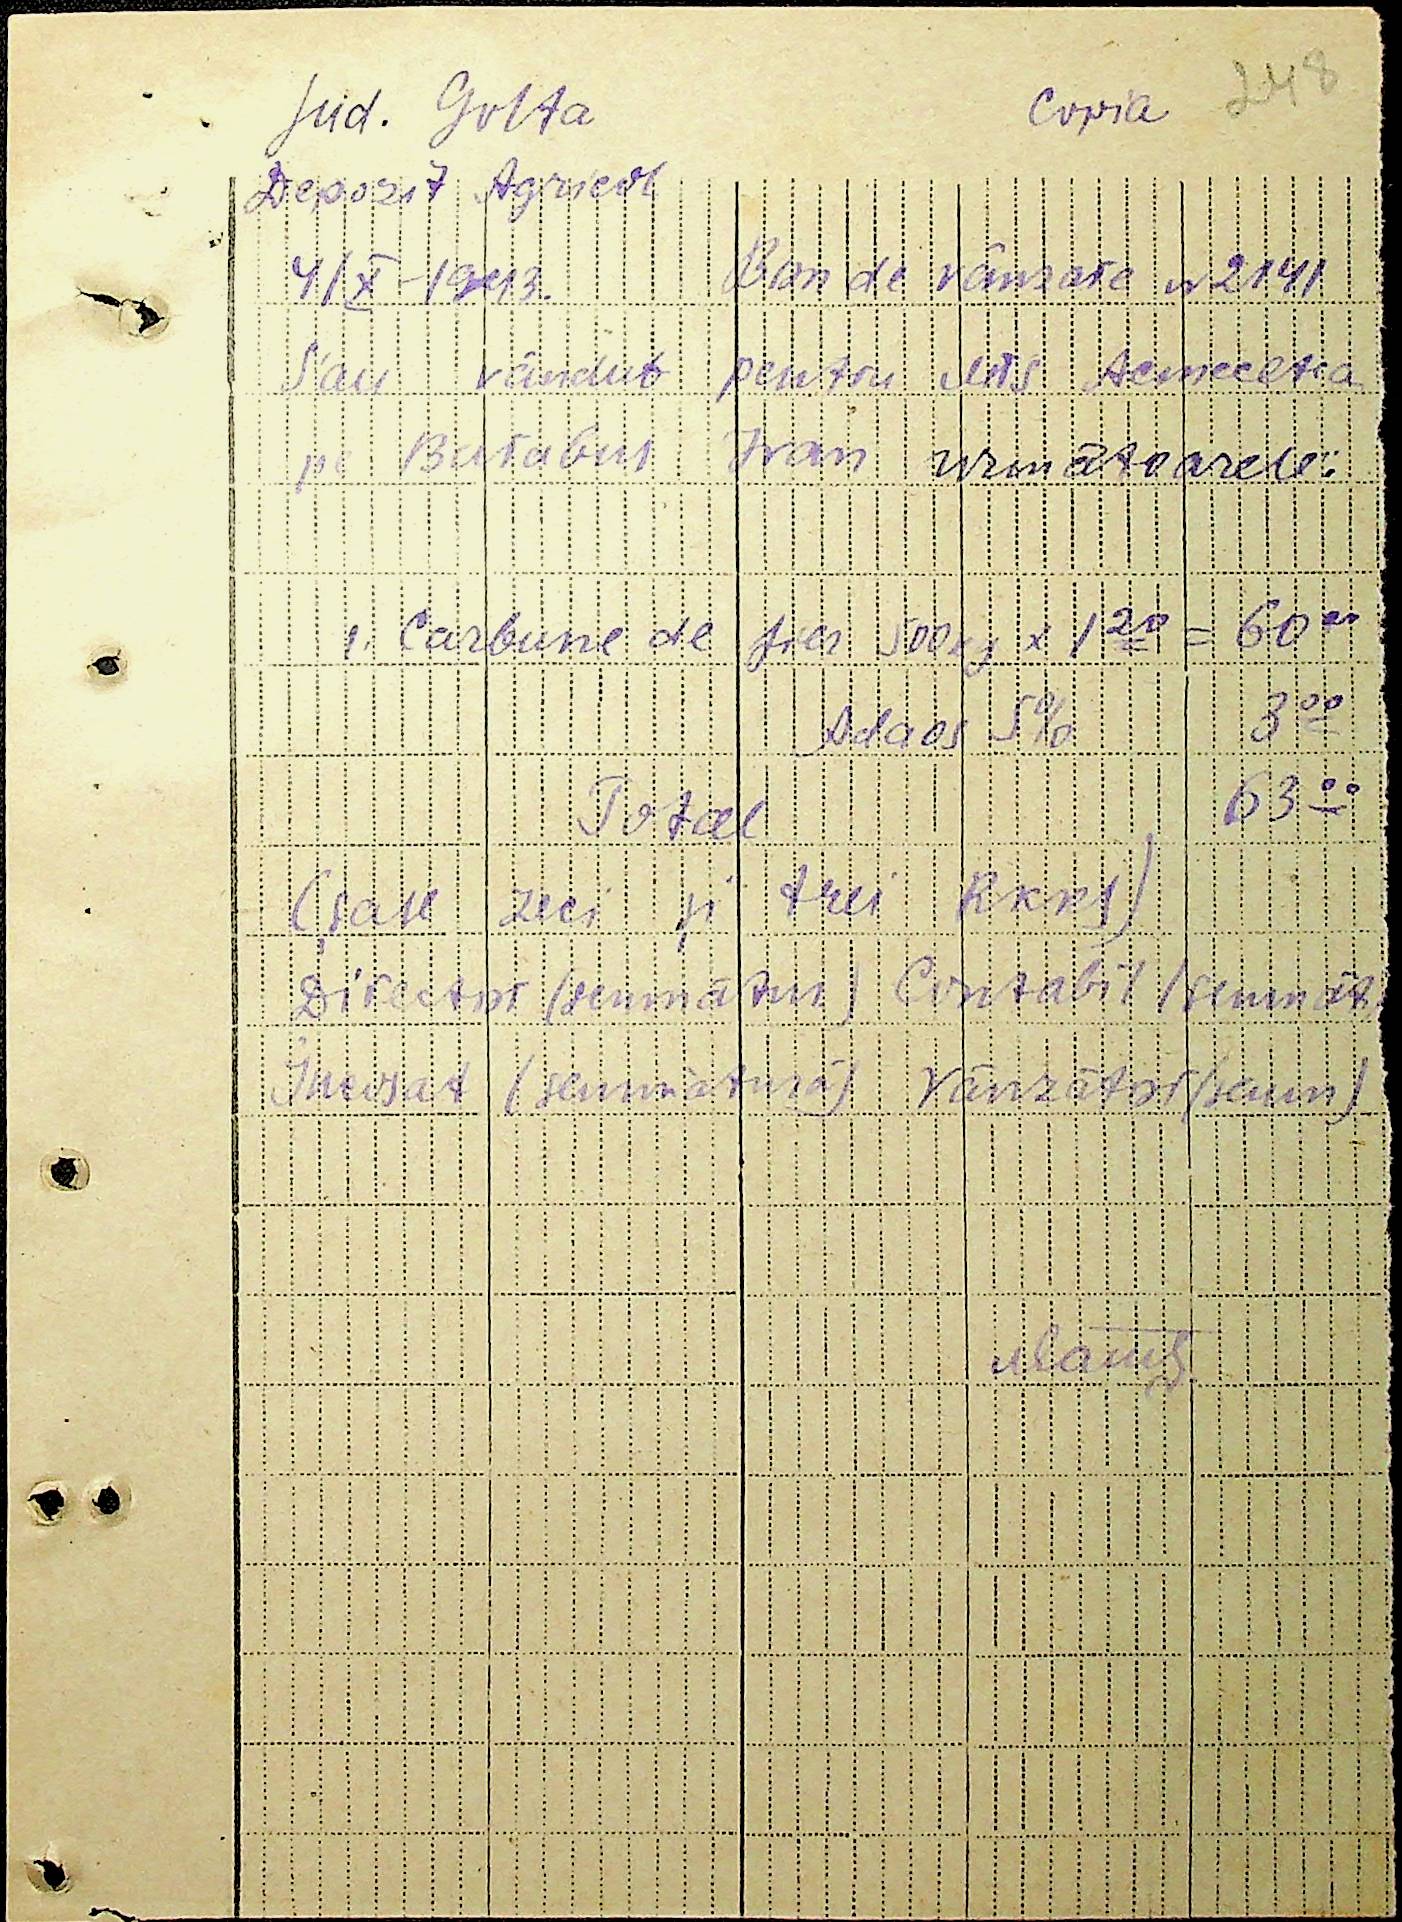 Jud. Golta Copia 248
Depozit Agricol
4/X-1943. Bon de vânzare nr 2141
S'au vândut pentru
pe Ivan următoarele:
1. Carbune de fier 500kg x 1 20 = 60 00
Adaos 5% 3 00
Total 63 00
(șase zeci și trei Rkks)
Director (semnătur) Contabil (semnăt
Incasat (semnătură) Vânzător (semn)